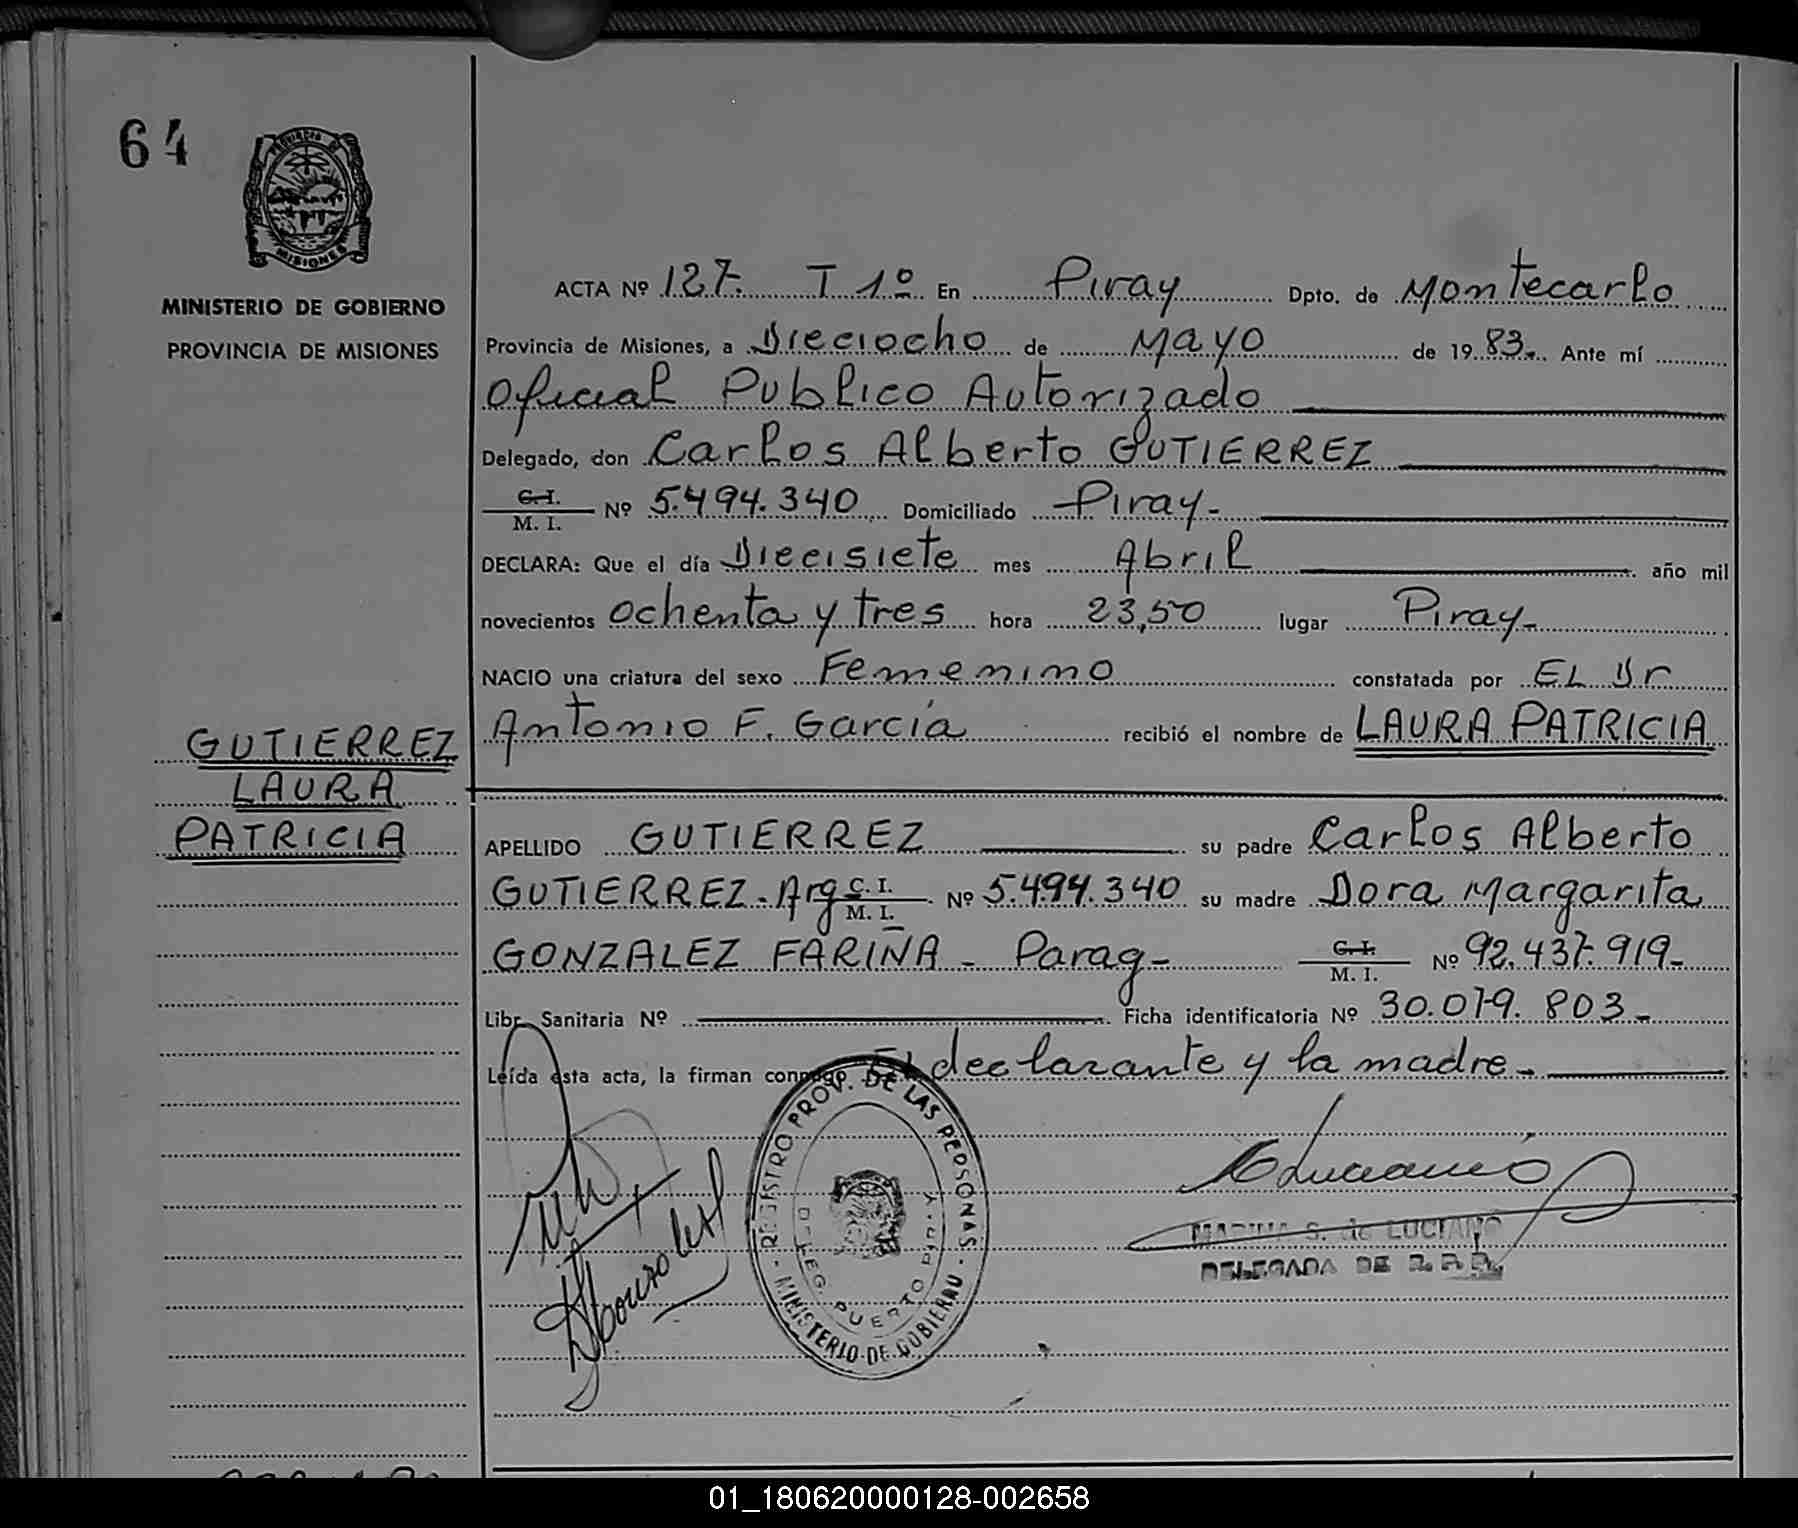 64
PROVINCIA DE
MISIONES
MINISTERIO DE GOBIERNO
PROVINCIA DE MISIONES
GUTIERREZ
LAURA
PATRICIA
ACTA Nº 127. T 1º En Piray Dpto. de Montecarlo
Provincia de Misiones, a Dieciocho de Mayo de 1983. Ante mí
Oficial Publico Autorizado
Delegado, don Carlos Alberto GUTIERREZ
C. I.
M. I. Nº 5.494.340 Domiciliado Piray-
DECLARA: Que el día Diecisiete mes Abril año mil
novecientos ochenta y tres hora 23,50 lugar Piray-
NACIO una criatura del sexo Femenino constatada por EL Dr
Antonio F. García recibió el nombre de LAURA PATRICIA
APELLIDO GUTIERREZ su padre Carlos Alberto
GUTIERREZ. Arg C. I.
M. I. Nº 5.494.340 su madre Dora Margarita
GONZALEZ FARIÑA - Parag- C. I.
M. I. Nº 92.437.919-
Libr. Sanitaria Nº Ficha identificatoria Nº 30.079.803-
Leída esta acta, la firman conmigo El declarante y la madre-
REGISTRO PROV. DE LAS PERSONAS
MINISTERIO DE GOBIERNO
DELEG. PUERTO PIRAY
MARINA S. de LUCIANO
DELEGADA DE R. P. P.
01_180620000128-002658